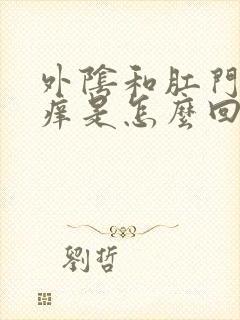 外陰和肛門
痒是怎麼回
劉哲